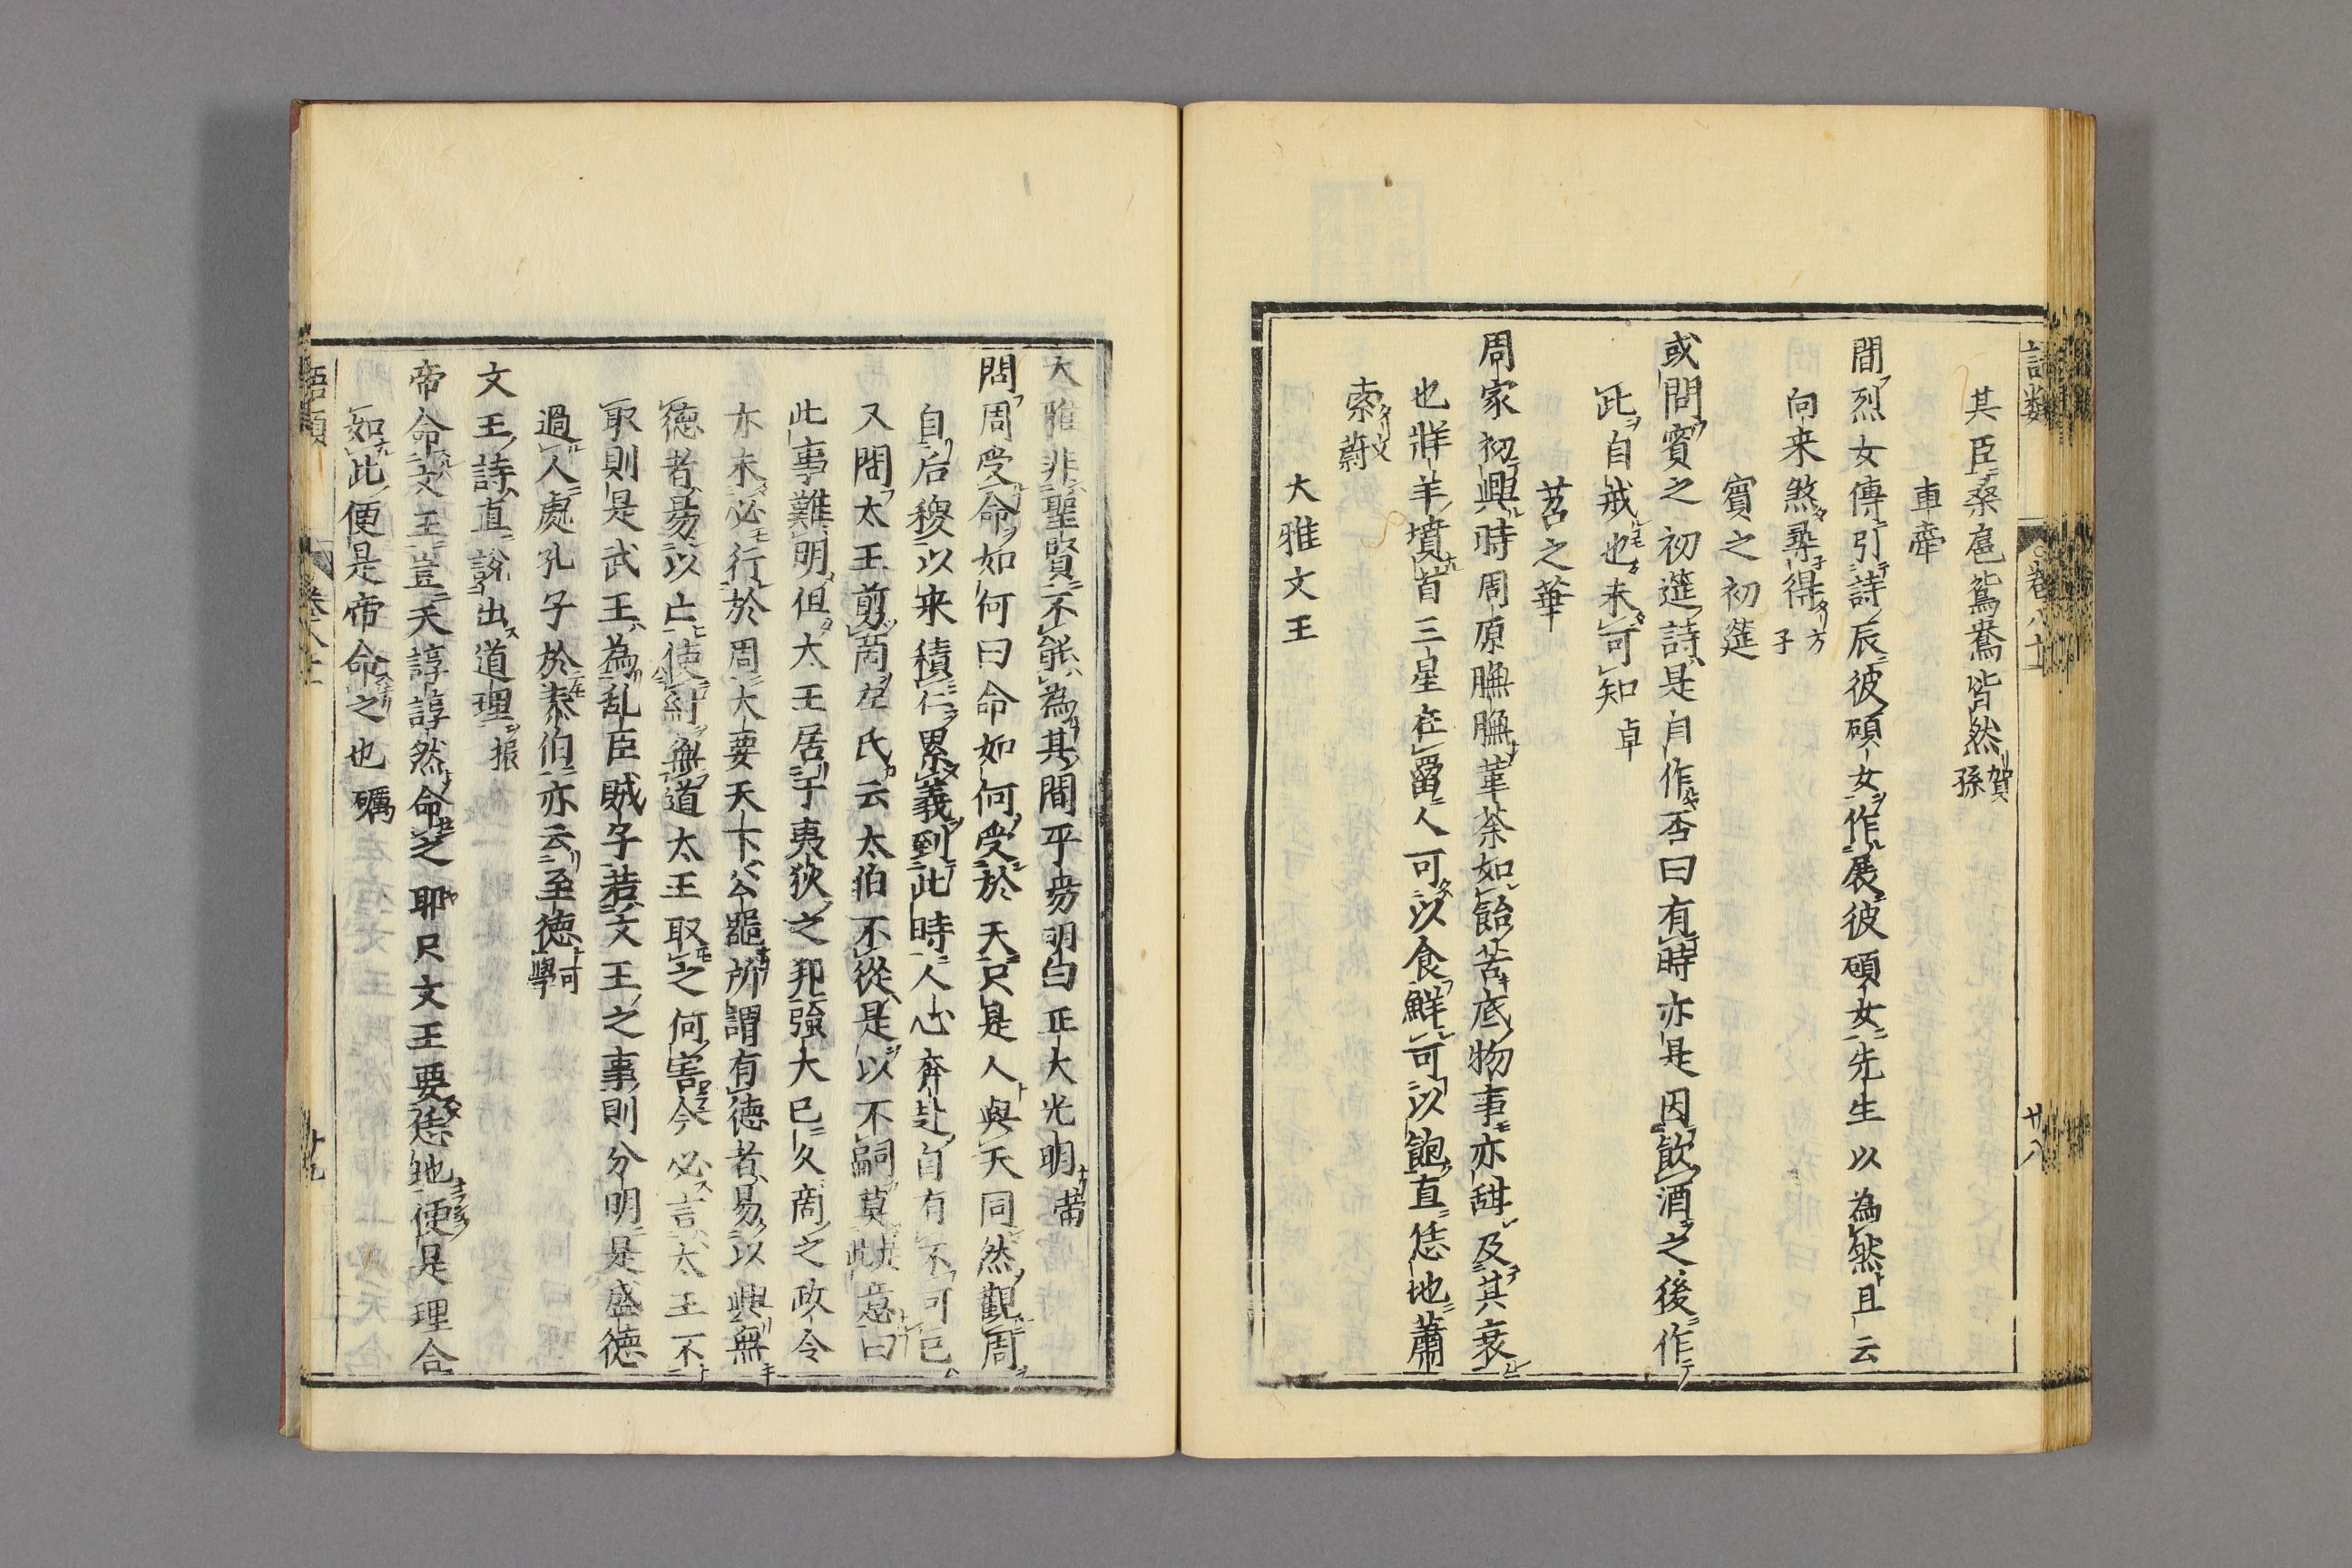 其臣桑扈鴛鴦皆然賀孫
車舝
問烈女傳引詩辰彼碩女作展彼碩女先生以為然且云
向来煞尋得方子
賓之初筵
或問賓之初筵詩是自作否曰有時亦是因飲酒之後作
此自戒也未可知卓
苕之華
周家初興時周原膴膴菫荼如飴苦底物事亦甜及其衰
也牂羊墳首三星在罶人可以食鮮可以飽直恁地蕭
索蔚
大雅文王
大雅非聖賢不能為其間平易明白正大光明㽦
問周受命如何曰命如何受於天只是人與天同然觀周
自后稷以来積仁累義到此時人心奔赴自有不可已
又問太王剪商左氏云太伯不從是以不嗣莫是此意曰
此事難明但太王居于夷狄之邦強大已久商之政令
亦未必行於周大要天下公器所謂有徳者易以興無
徳者易以亡使紂無道太王取之何害今必言太王不
取則是武王為乱臣賊子若文王之事則分明是盛徳
過人處孔子於泰伯亦云至徳可學
文王詩直說出道理振
帝命文王豈天諄諄然命之耶只文王要恁地便是理合
如此便是帝命之也礪
語類
卷八十一
廿八